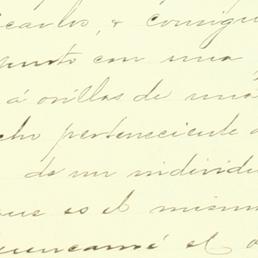 carlos, & consigu
punto con una
á orillas de una
cho perteneciente a
de un individu
que es el mism
encamé el